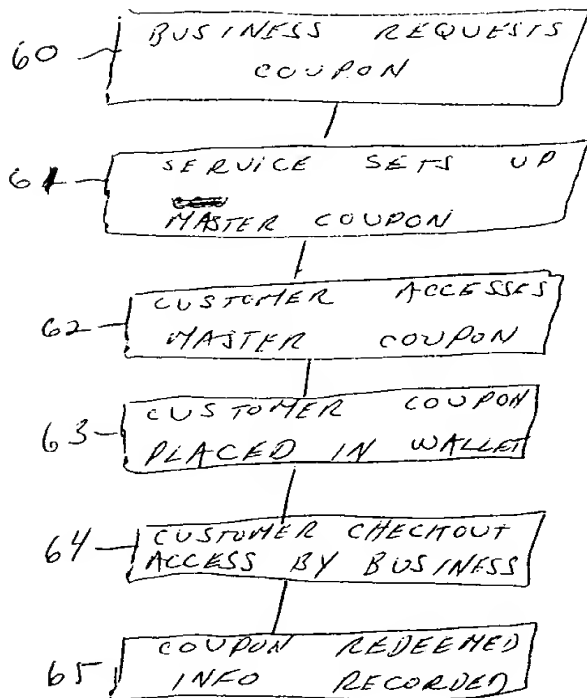 60 BUSINESS REQUESTS
COUPON
61 SERVICE SETS UP
MASTER COUPON
62 CUSTOMER ACCESSES
MASTER COUPON
63 CUSTOMER COUPON
PLACED IN WALLET
64 CUSTOMER CHECKOUT
ACCESS BY BUSINESS
65 COUPON REDEEMED
INFO RECORDED